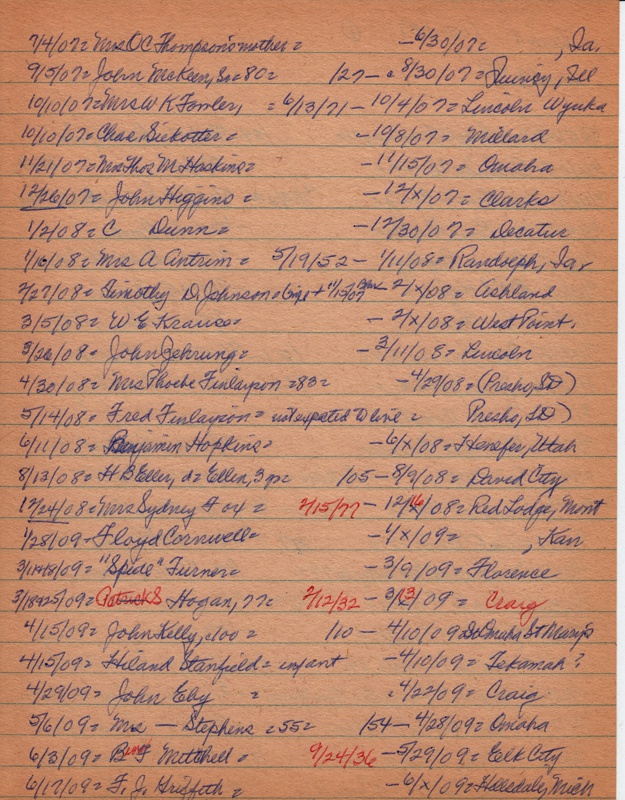 7/4/07 = Mrs O C Thompson's mother = -6/30/07 = , Ia.
9/5/07 = John McKeen, Sr = 80 = 1/27 - 8/30/07 = Quincy, Ill
10/10/07 = Mrs W K Fowler, = 6/13/71 - 10/4/07 = Lincoln Wyuka
10/10/07 = Chas, Siekotter = -10/8/07 = Millard
11/21/07 = Mrs Thos M Hoskins = -11/15/07 = Omaha
12/26/07 = John Higgins = -12/x/07 = Clarks
1/2/08 = C Dunn = -12/30/07 = Decatur
1/16/08 = Mrs A Antrim = 5/19/52 - 1/11/08 = Randolph, Ia,
2/27/08 = Timothy D Johnson = 2/x/08 = Ashland
3/5/08 = W E Krause = -2/x/08 = West Point.
3/26/08 = John Gehrung = -3/11/08 = Lincoln
4/30/08 = Mrs Phoebe Finlayson = 83 = -4/29/08 = (Presho, SD)
5/14/08 = Fred Finlayson = not expected to live = Presho, SD)
6/11/08 = Benjamin Hopkins = -6/x/08 = Henefer, Utah
8/13/08 = H B Eller, d = Ellen, 3 yr = /05 - 8/9/08 = David City
12/24/08 = Mrs Sydney Fox = 2/15/77 - 12/16/08 = Red Lodge, Mont
1/28/09 = Floyd Cornwell = -1/x/09 = , Kan
3/11&18/09 = "Spide" Turner = -3/9/09 = Florence
3/18&25/09 = Patrick S Hogan, 77 = 2/12/32 - 3/13/09 = Craig
4/15/09 = John Kelly, c100 = /10 - 4/10/09 So Omaha St Mary's
4/15/09 = Hiland Stanfield = infant -4/10/09 = Tekamah?
4/29/09 = John Eby = = 4/22/09 = Craig
5/6/09 = Mrs — Stephens = 55 = /54 - 4/28/09 = Omaha
6/3/09 = Mitchell = 9/24/36 - 5/29/09 = Elk City
6/17/09 = F. J. Griffeth = -6/x/09 = Hillsdale, Mich